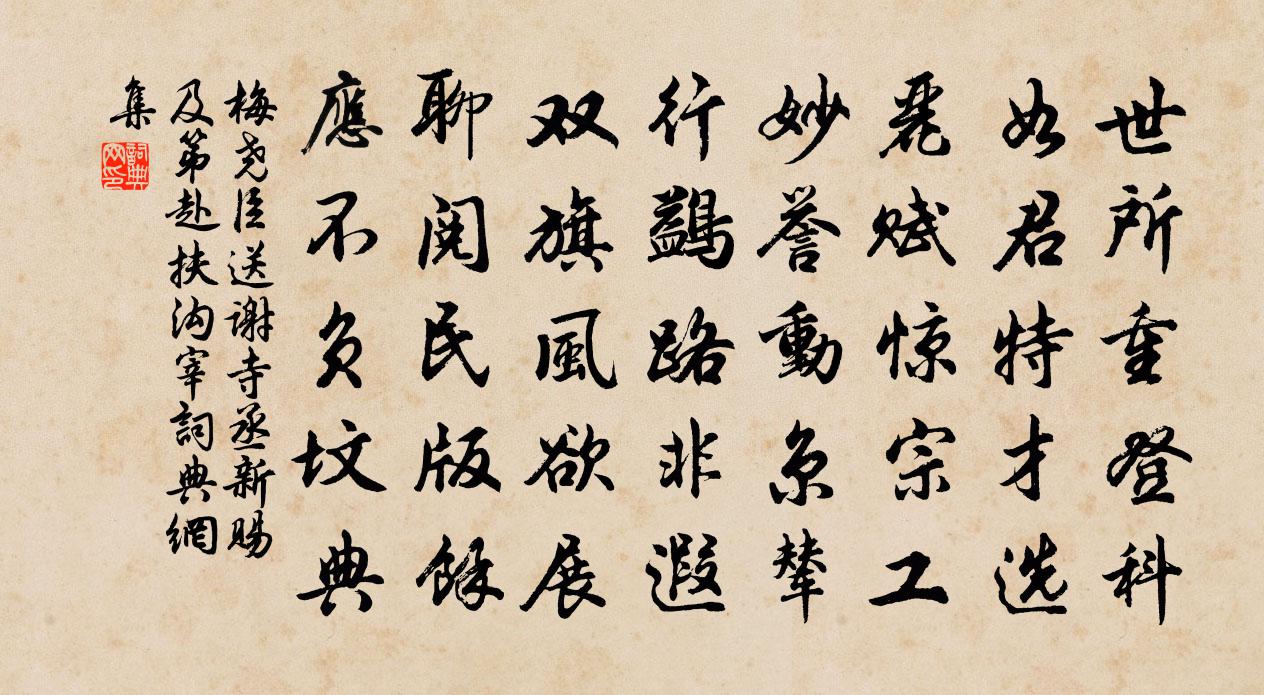 世所重登科
如君特才选
麗赋惊宗工
妙誉動京輦
行鷁路非遐
双旗風欲展
聊阅民版餘
應不负坟典
梅尧臣送谢寺丞新赐
及第赴扶沟宰詞典網
集
詞典网印